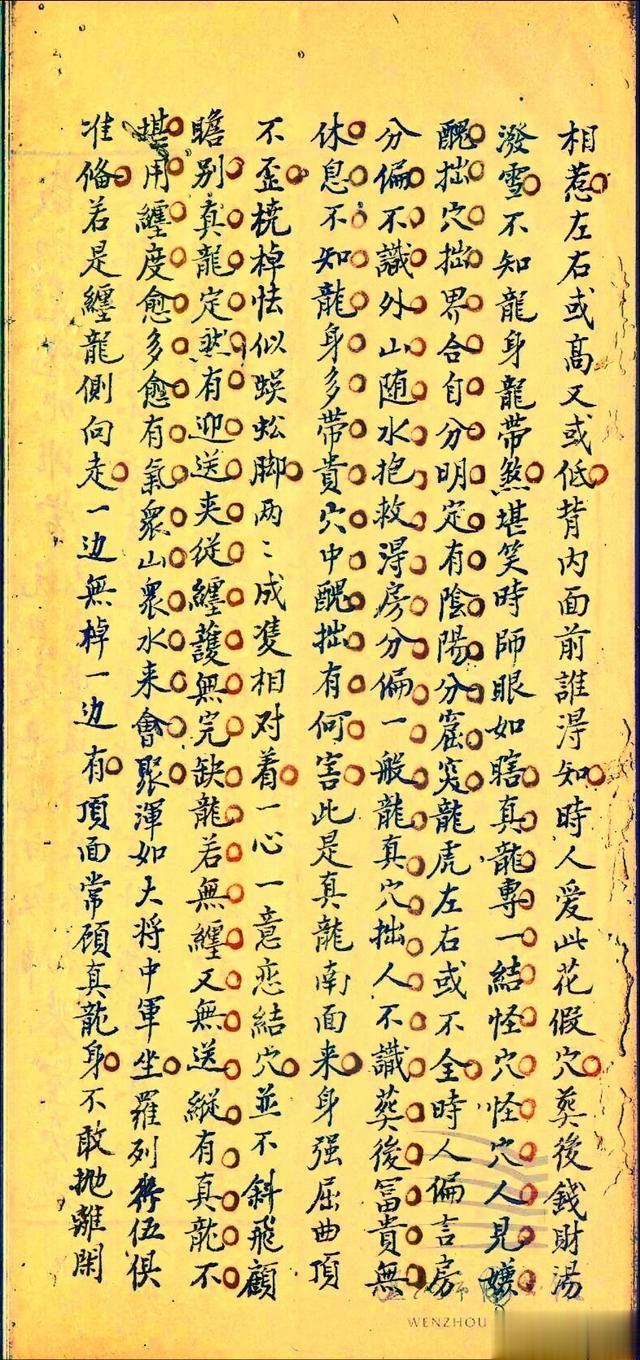 相惹左右或高又或低背内面前誰淂知時人爱此花假穴葬後錢財湯
潑雪不知龍身龍帶煞堪笑時師眼如瞎真龍專一結怪穴怪穴人見嫌
醜拙穴拙界合自分明定有陰陽分窟突龍虎左右或不全時人偏言房
分偏不識外山随水抱救淂房分偏一般龍真穴拙人不識葬後冨貴無
休息不知龍身多带貴穴中醜拙有何害此是真龍南面来身强屈曲頂
不歪橈棹恠似蜈蚣脚两〻成雙相对着一心一意恋結穴並不斜飛顧
瞻别真龍定然有迎送夹從纏護無完缺龍若無纏又無送縱有真龍不
堪用纏度愈多愈有氣眾山眾水来會聚渾如大将中軍坐羅列伍俱
准俻若是纏龍側向走一边無棹一边有頂面常顧真龍身不敢抛離閑
WENZHOU